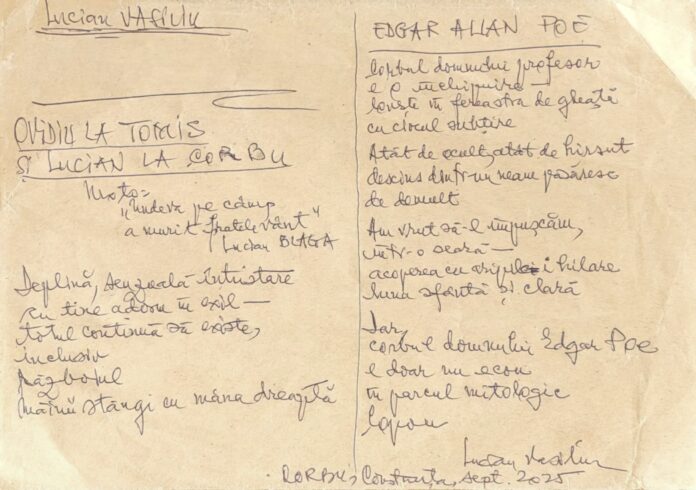 Lucian VASILIU
OVIDIU LA TOMIS
ȘI LUCIAN LA CORBU
Moto:
"Undeva pe câmp
a murit fratele vânt"
Lucian BLAGA
Deplină, senzuală întristare
cu tine adorm în exil —
totul continuă să existe,
inclusiv
războiul
mâinii stângi cu mâna dreaptă
EDGAR ALLAN POE
Corbul domnului profesor
e o închipuire —
lovește în fereastra de gheață
cu ciocul subțire
Atât de ocult, atât de hirsut
descins dintr-un neam păsăresc
de demult
Am vrut să-l împușcăm,
într-o seară —
acoperea cu aripi hilare
luna sfântă și clară
Dar,
corbul domnului Edgar Poe
e doar un ecou
în parcul mitologic
Copou
Lucian Vasiliu
CORBU, Constanța, sept. 2025